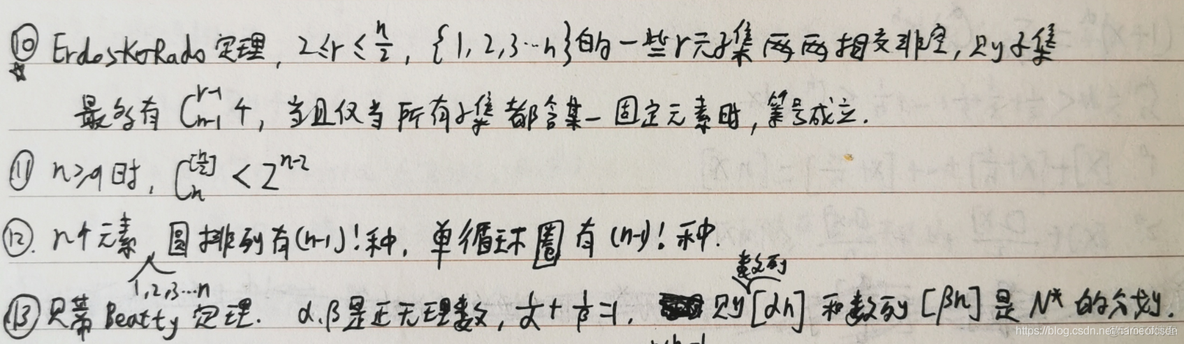 ⑩ Erdos-Ko-Rado 定理, 2≤r≤n/2, {1,2,3…n}的一些r元子集两两相交非空,则子集
☆ 最多有 C_{n-1}^{r-1} 个, 当且仅当所有子集都含某一固定元素时,等号成立.
⑪ n≥9时, C_n^{[n/2]} < 2^{n-2}
⑫. n个元素, 圆排列有(n-1)!种, 单循环圈有(n-1)!种.
1,2,3…n
数列
⑬ 贝蒂 Beatty 定理. α,β是正无理数, 1/α + 1/β =1, 则[αn]和数列[βn]是N*的分划.